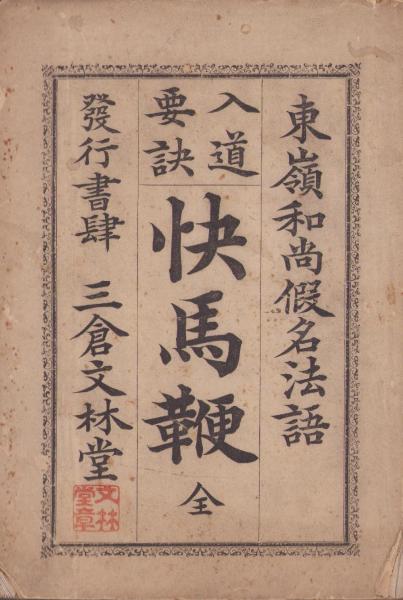 東嶺和尚假名法語
入道
要訣
快馬鞭 全
發行書肆 三倉文林堂
文林
堂章